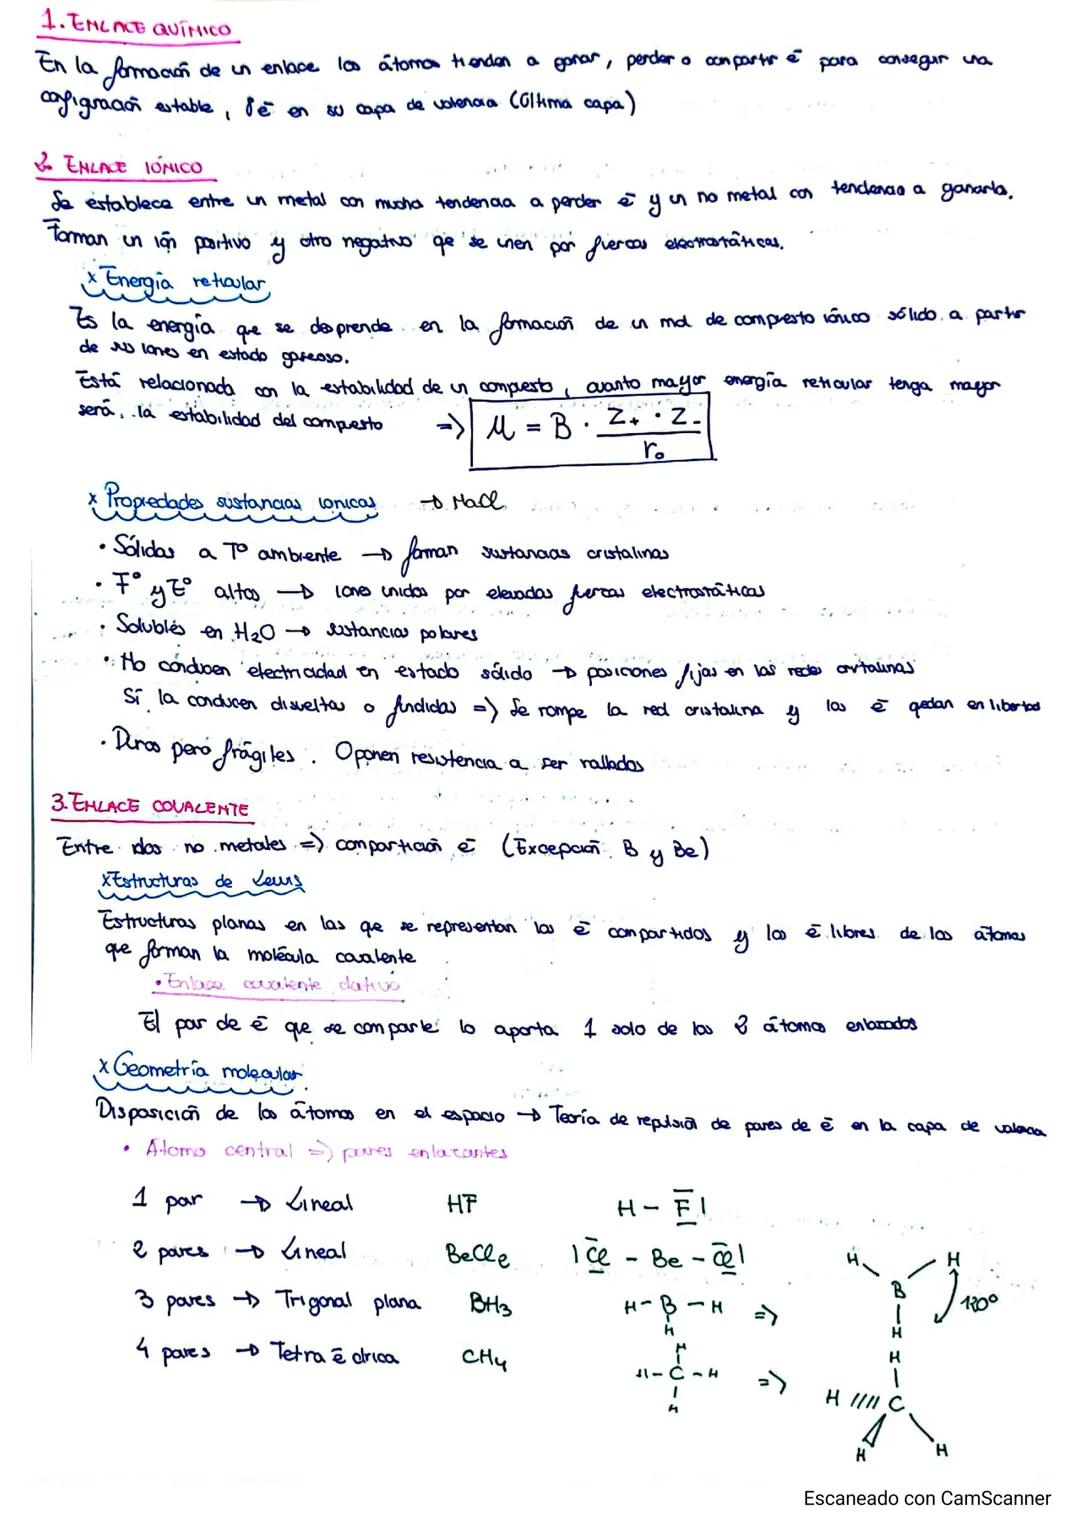 1. ENLACE QUÍMICO
En la formación de un enlace los átomos tienden a ganar, perder o compartir ē para conseguir una
cofigración estable, 8ē en su capa de valencia (Última capa)
2. ENLACE IÓNICO
Se establece entre un metal con mucha tendencia a perder ē y un no metal con tendencia a ganarla.
Forman un ión positivo y otro negativo qe se unen por fuerzas electrostáticas.
x Energía reticular
Es la energía qe se desprende en la formación de un mol de compuesto iónico sólido a partir
de sus iones en estado gaseoso.
Está relacionada con la estabilidad de un compuesto, cuanto mayor energía reticular tenga mayor
será la estabilidad del compuesto => U = B · Z+ · Z- / r₀
x Propiedades sustancias iónicas → NaCl
• Sólidas a Tº ambiente → forman sustancias cristalinas
• Fº y Eº altos → iones unidos por elevadas fuerzas electrostáticas
• Solubles en H₂O → sustancias polares
• No conducen electricidad en estado sólido → posiciones fijas en las redes cristalinas
Sí la conducen disueltas o fundidas => Se rompe la red cristalina y los ē qedan en libertad
• Duros pero frágiles. Oponen resistencia a ser rallados
3. ENLACE COVALENTE
Entre dos no metales => compartición ē (Excepción B y Be)
x Estructuras de Lewis
Estructuras planas en las qe se representan los ē compartidos y los ē libres de los átomos
que forman la molécula covalente
• Enlace covalente dativo
El par de ē que se comparte lo aporta 1 solo de los 2 átomos enlazados
x Geometría molecular
Disposición de los átomos en el espacio → Teoría de repulsión de pares de ē en la capa de valencia
• Átomo central => pares enlazantes
1 par → Lineal HF H - F̲̅|
2 pares → Lineal BeCl₂ |C̲̅l̲ - Be - C̲̅l̲|
3 pares → Trigonal plana BH₃ H - B - H => H H B 120º
H H
4 pares → Tetraēdrica CH₄ H H
H - C - H => H C
H H H
Escaneado con CamScanner